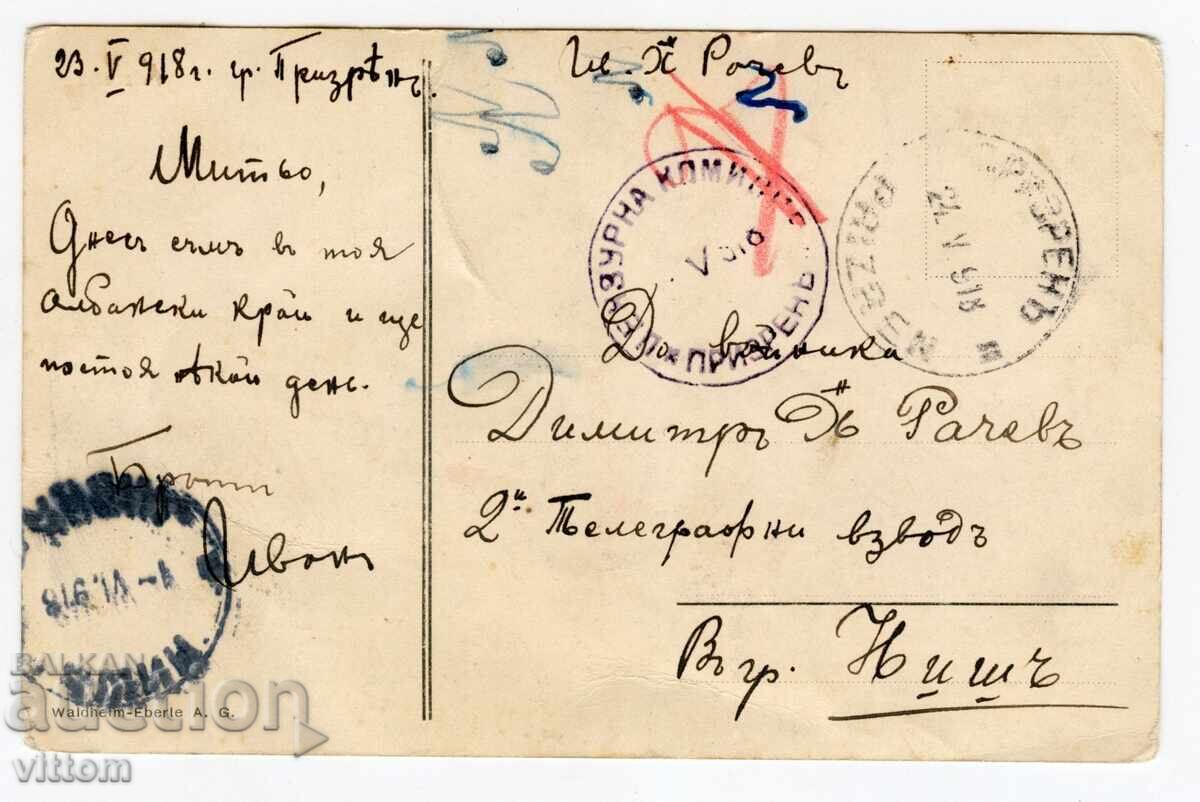 23. V 918 г. гр. Призрѣнъ.
Митьо,
Днесъ съмъ въ тоя
Албански край и ще
постоя нѣкой день.
Братъ
Иванъ
Рачевъ
ЦЕНЗУРНА КОМИСИЯ
V 918
* ПРИЗРЕНЪ
ПРИЗРЕНЪ
24 V 918
PRIZREN
До войника
Димитръ Х" Рачевъ
2" Телеграфни взводъ
Въ гр. Нишъ
1-VI.918
НИШЪ
Waldheim-Eberle A. G.
BALKAN
auction
vittom